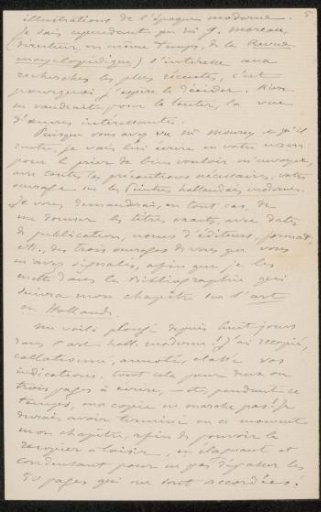 5
illustrations de l'époque moderne.
Je sais cependant que M. G. Moreau
(directeur, en même temps, de la Revue
encyclopédique) s'intéresse aux
recherches les plus récentes, c'est
pourquoi j'espère le décider. Rien
ne vaudrait, pour le tenter, la vue
d'œuvres intéressantes.
Puisque vous avez vu
je vais lui écrire en votre nom
pour le prier de bien vouloir m'envoyer,
avec toutes les précautions nécessaires, votre
ouvrage sur les Peintres hollandais modernes.
Je vous demanderai, en tout cas, de
me donner les titres exacts, avec dates
de publication, noms d'éditeurs, format,
etc., des trois ouvrages de vous que vous
m'avez signalés, afin que je les
mette dans la Bibliographie qui
suivra mon chapitre sur l'art
en Hollande.
Me voilà plongé depuis huit jours
dans l'art holl. moderne! J'ai recopié,
collationné, annoté, vos
indications, tout cela pour deux ou
trois pages à écrire, – et, pendant ce
temps, ma copie ne marche pas! Je
devrais avoir terminé en ce moment
mon chapitre, afin de pouvoir le
recopier à loisir, en élaguant et
condensant pour ne pas dépasser les
50 pages qui me sont accordées.